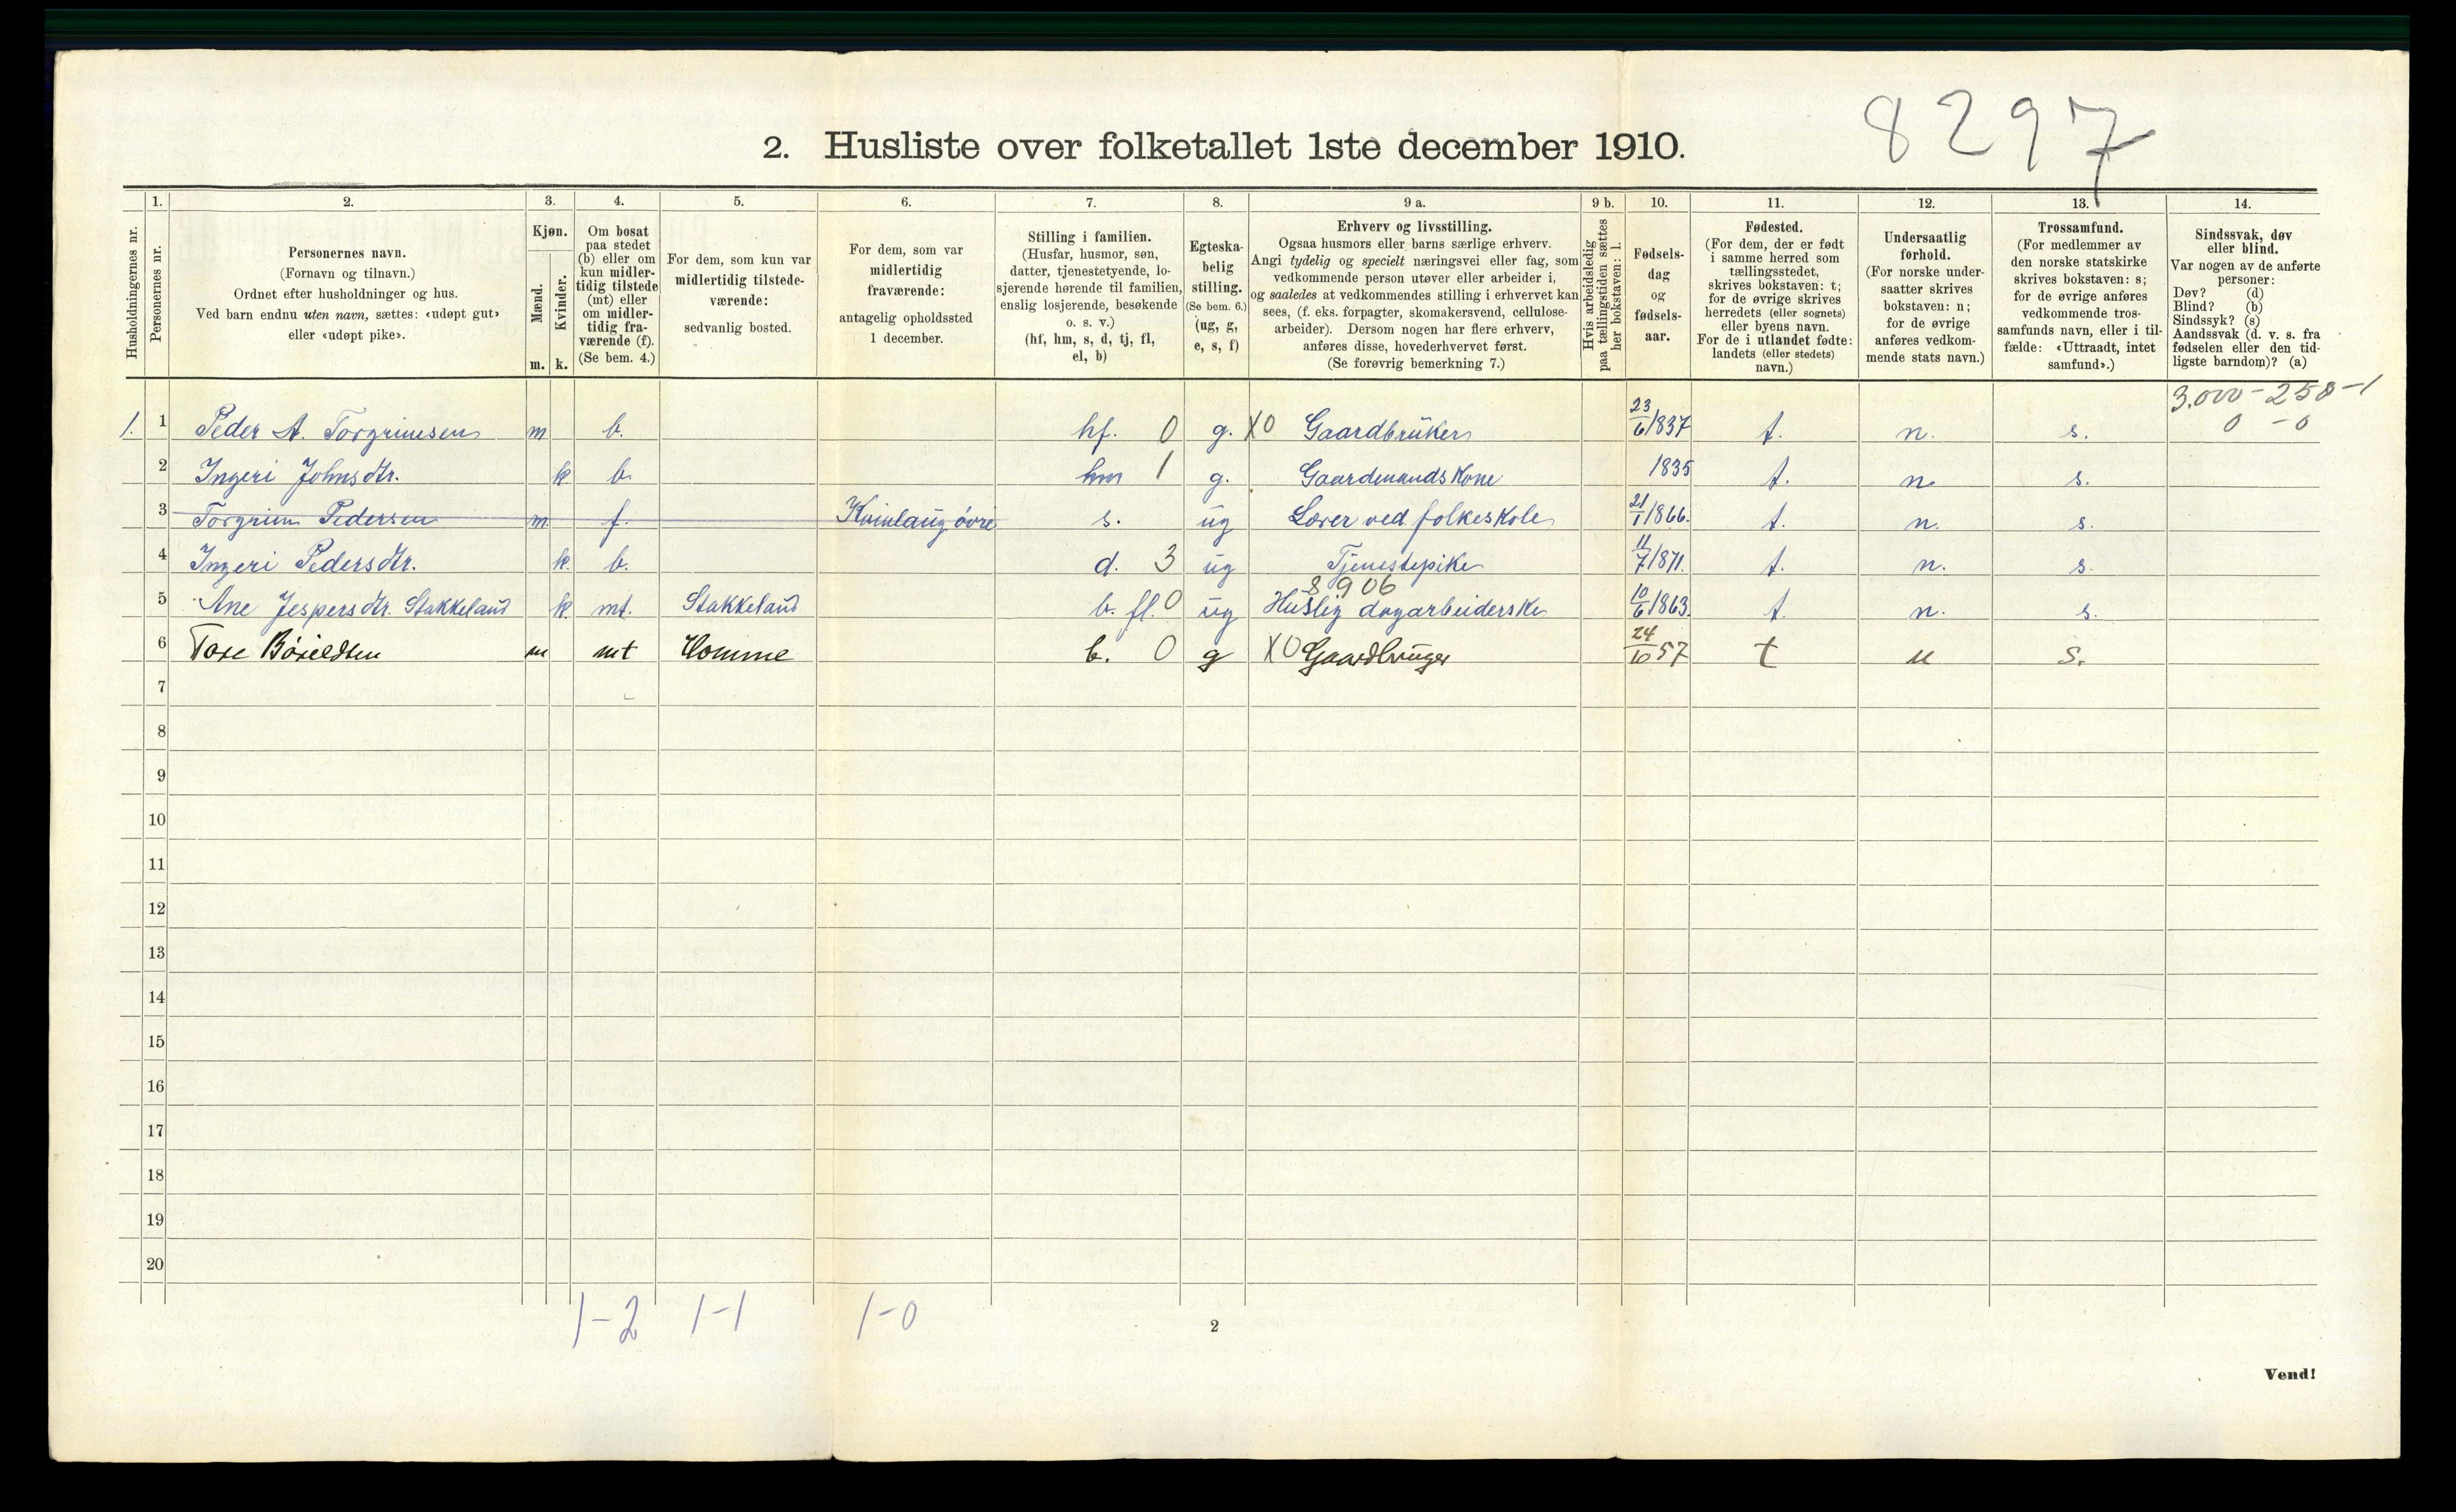 8297
2. Husliste over folketallet 1ste december 1910.
1. 2. 3. 4. 5. 6. 7. 8. 9 a. 9 b. 10. 11. 12. 13. 14.
Husholdningernes nr.
Personernes nr.
Personernes navn.
(Fornavn og tilnavn.)
Ordnet efter husholdninger og hus.
Ved barn endnu uten navn, sættes: «udøpt gut»
eller «udøpt pike».
Kjøn.
Mænd.
Kvinder.
m. k.
Om bosat
paa stedet
(b) eller om
kun midler-
tidig tilstede
(mt) eller
om midler-
tidig fra-
værende (f).
(Se bem. 4.)
For dem, som kun var
midlertidig tilstede-
værende:
sedvanlig bosted.
For dem, som var
midlertidig
fraværende:
antagelig opholdssted
1 december.
Stilling i familien.
(Husfar, husmor, søn,
datter, tjenestetyende, lo-
sjerende hørende til familien,
enslig losjerende, besøkende
o. s. v.)
(hf, hm, s, d, tj, fl,
el, b)
Egteska-
belig
stilling.
(Se bem. 6.)
(ug, g,
e, s, f)
Erhverv og livsstilling.
Ogsaa husmors eller barns særlige erhverv.
Angi tydelig og specielt næringsvei eller fag, som
vedkommende person utøver eller arbeider i,
og saaledes at vedkommendes stilling i erhvervet kan
sees, (f. eks. forpagter, skomakersvend, cellulose-
arbeider). Dersom nogen har flere erhverv,
anføres disse, hovederhvervet først.
(Se forøvrig bemerkning 7.)
Hvis arbeidsledig
paa tællingstiden sættes
her bokstaven: l.
Fødsels-
dag
og
fødsels-
aar.
Fødested.
(For dem, der er født
i samme herred som
tællingsstedet,
skrives bokstaven: t;
for de øvrige skrives
herredets (eller sognets)
eller byens navn.
For de i utlandet fødte:
landets (eller stedets)
navn.)
Undersaatlig
forhold.
(For norske under-
saatter skrives
bokstaven: n;
for de øvrige
anføres vedkom-
mende stats navn.)
Trossamfund.
(For medlemmer av
den norske statskirke
skrives bokstaven: s;
for de øvrige anføres
vedkommende tros-
samfunds navn, eller i til-
fælde: «Uttraadt, intet
samfund».)
Sindssvak, døv
eller blind.
Var nogen av de anførte
personer:
Døv? (d)
Blind? (b)
Sindssyk? (s)
Aandssvak (d. v. s. fra
fødselen eller den tid-
ligste barndom)? (a)
3.000-250-1
0 -0
1. 1 Peder A. Torgrimsen m b. hf. 0 g. X0 Gaardbruker 23/6 1837 t. n. s.
2 Ingeri Johnsdtr. k b. hm 1 g. Gaardmandskone 1835 t. n. s.
3 Torgrim Pedersen m f. Kvinlaug øvre s. ug Lærer ved folkeskole 21/1 1866. t. n. s.
4 Ingeri Pedersdtr. k. b. d. 3 ug Tjenestepike 11/7 1871. t. n. s.
8906
5 Ane Jespersdtr. Stakkeland k. mt. Stakkeland b. fl. 0 ug Huslig dagarbeiderske 10/6 1863. t. n. s.
6 Tore Bøieldsen m mt Homme b. 0 g X0 Gaardbruger 24/10 57 t n s.
7
8
9
10
11
12
13
14
15
16
17
18
19
20
1-2 1-1 1-0
2
Vend!